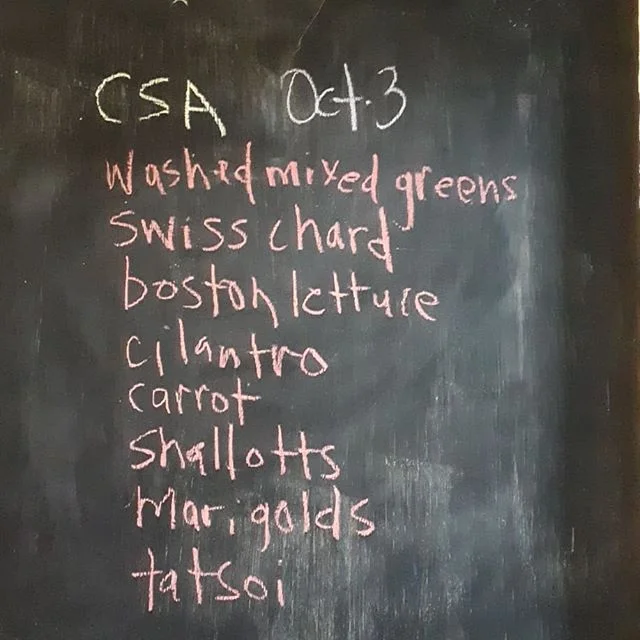 CSA Oct.3
Washed mixed greens
Swiss chard
boston lettuce
cilantro
carrot
shallotts
Marigolds
tatsoi